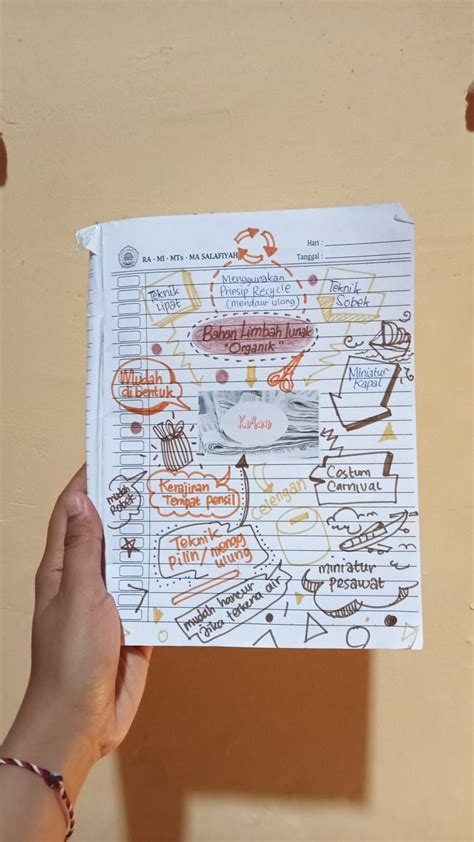 RA - MI - MTs - MA SALAFIYAH
Hari :
Tanggal :
Teknik
Lipat
Menggunakan
Prinsip Recycle
(mendaur ulang)
Teknik
Sobek
Bahan Limbah lunak
"Organik"
Mudah
di bentuk
Miniatur
Kapal
Koran
Kerajinan
Tempat Pensil
mudah
Robek
Celengan
Costum
Carnival
Teknik
pilin/mengg
ulung
miniatur
pesawat
mudah hancur
jika terkena air